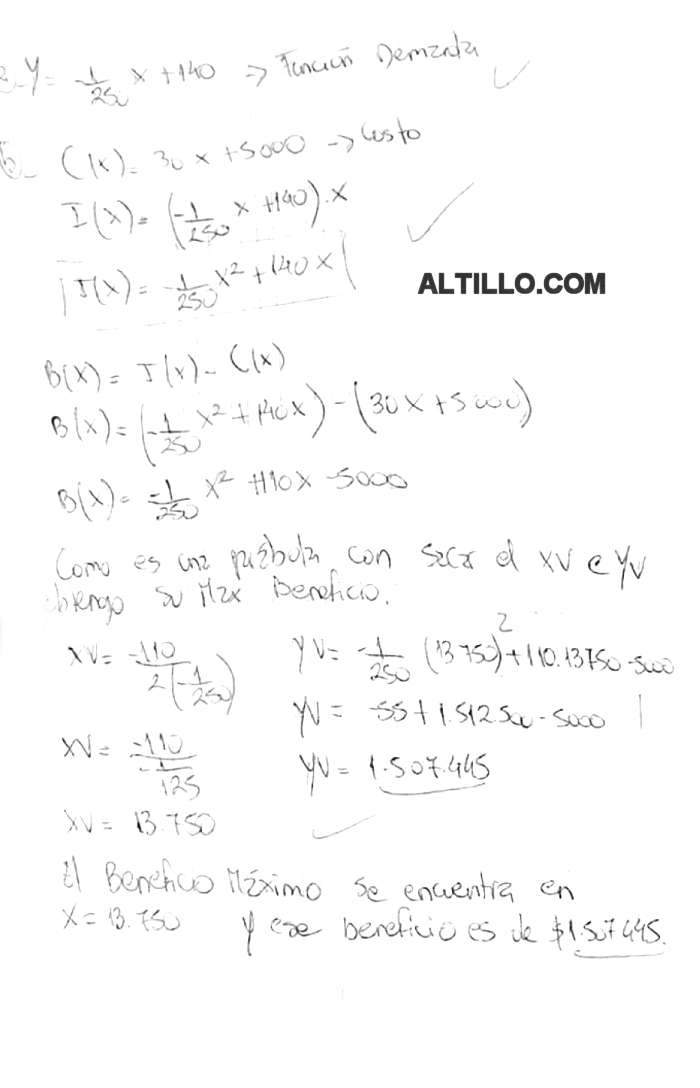 a_ Y = -1/250 x + 140 -> Función Demanda
b_ C(x) = 30x + 5000 -> Costo
I(x) = (-1/250 x + 140).x
I(x) = -1/250 x² + 140x
ALTILLO.COM
B(x) = I(x) - C(x)
B(x) = (-1/250 x² + 140x) - (30x + 5000)
B(x) = -1/250 x² + 110x - 5000
Como es una parábola con sacar el XV e YV
obtengo su Max Beneficio.
XV = -110 / 2(-1/250)
YV = -1/250 (13750)² + 110.13750 - 5000
YV = -55 + 1.512.500 - 5000
XV = -110 / -1/125
YV = 1.507.445
XV = 13.750
El Beneficio Máximo se encuentra en
X = 13.750 y ese beneficio es de $1.507.445.